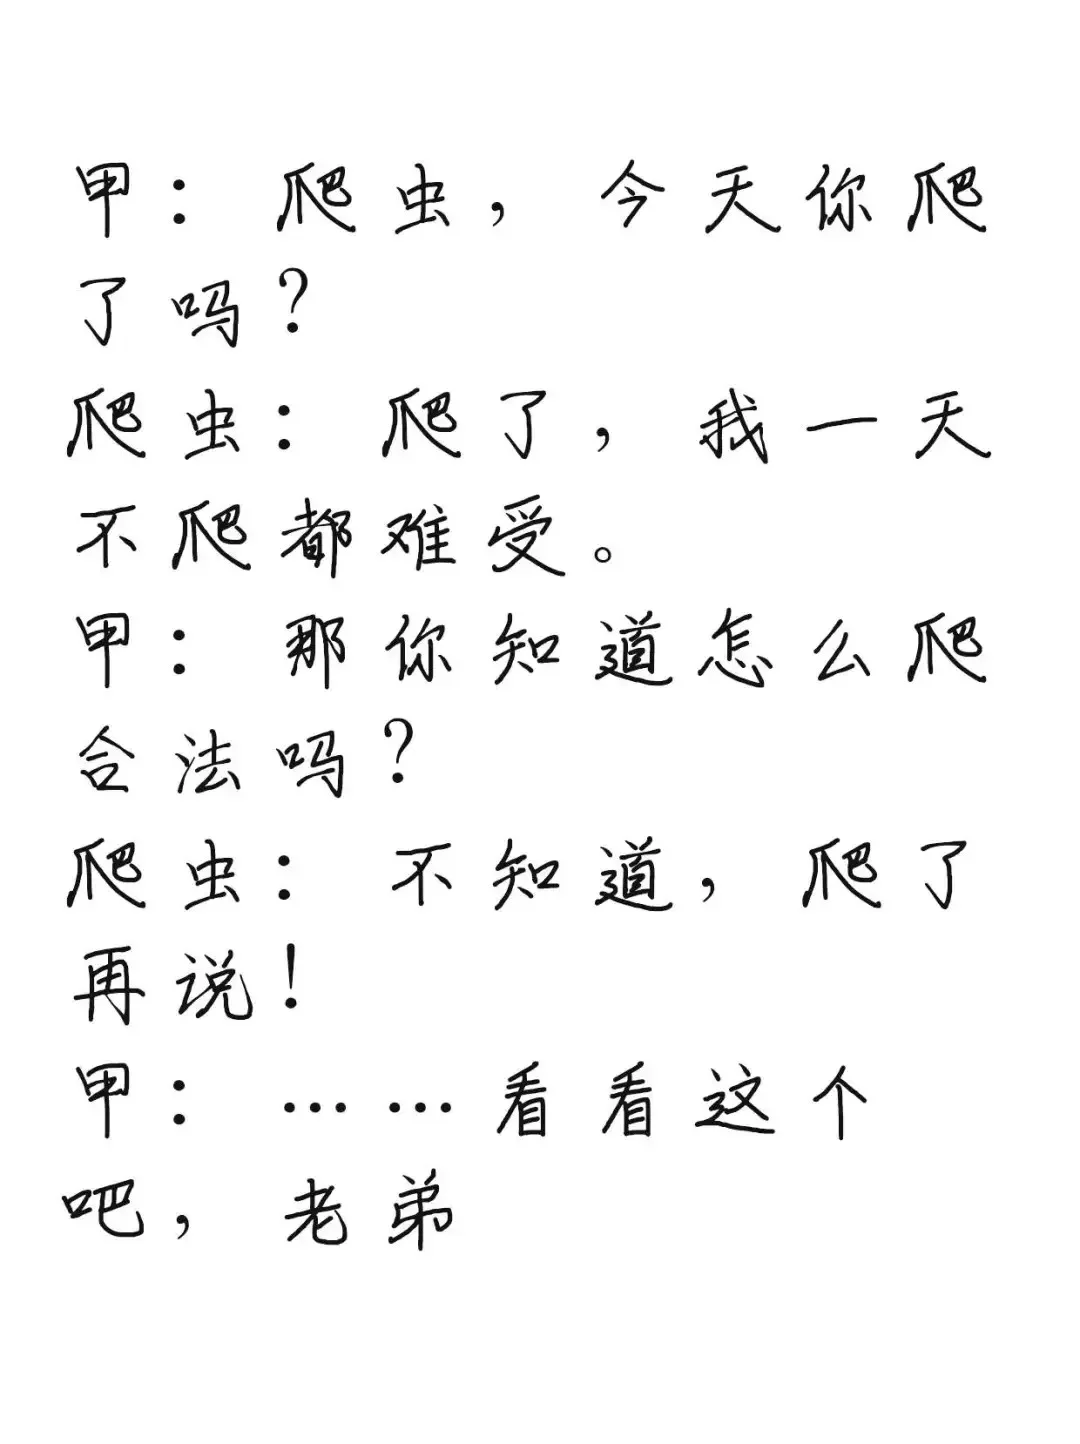 甲：爬虫，今天你爬
了吗？
爬虫：爬了，我一天
不爬都难受。
甲：那你知道怎么爬
合法吗？
爬虫：不知道，爬了
再说！
甲：……看看这个
吧，老弟